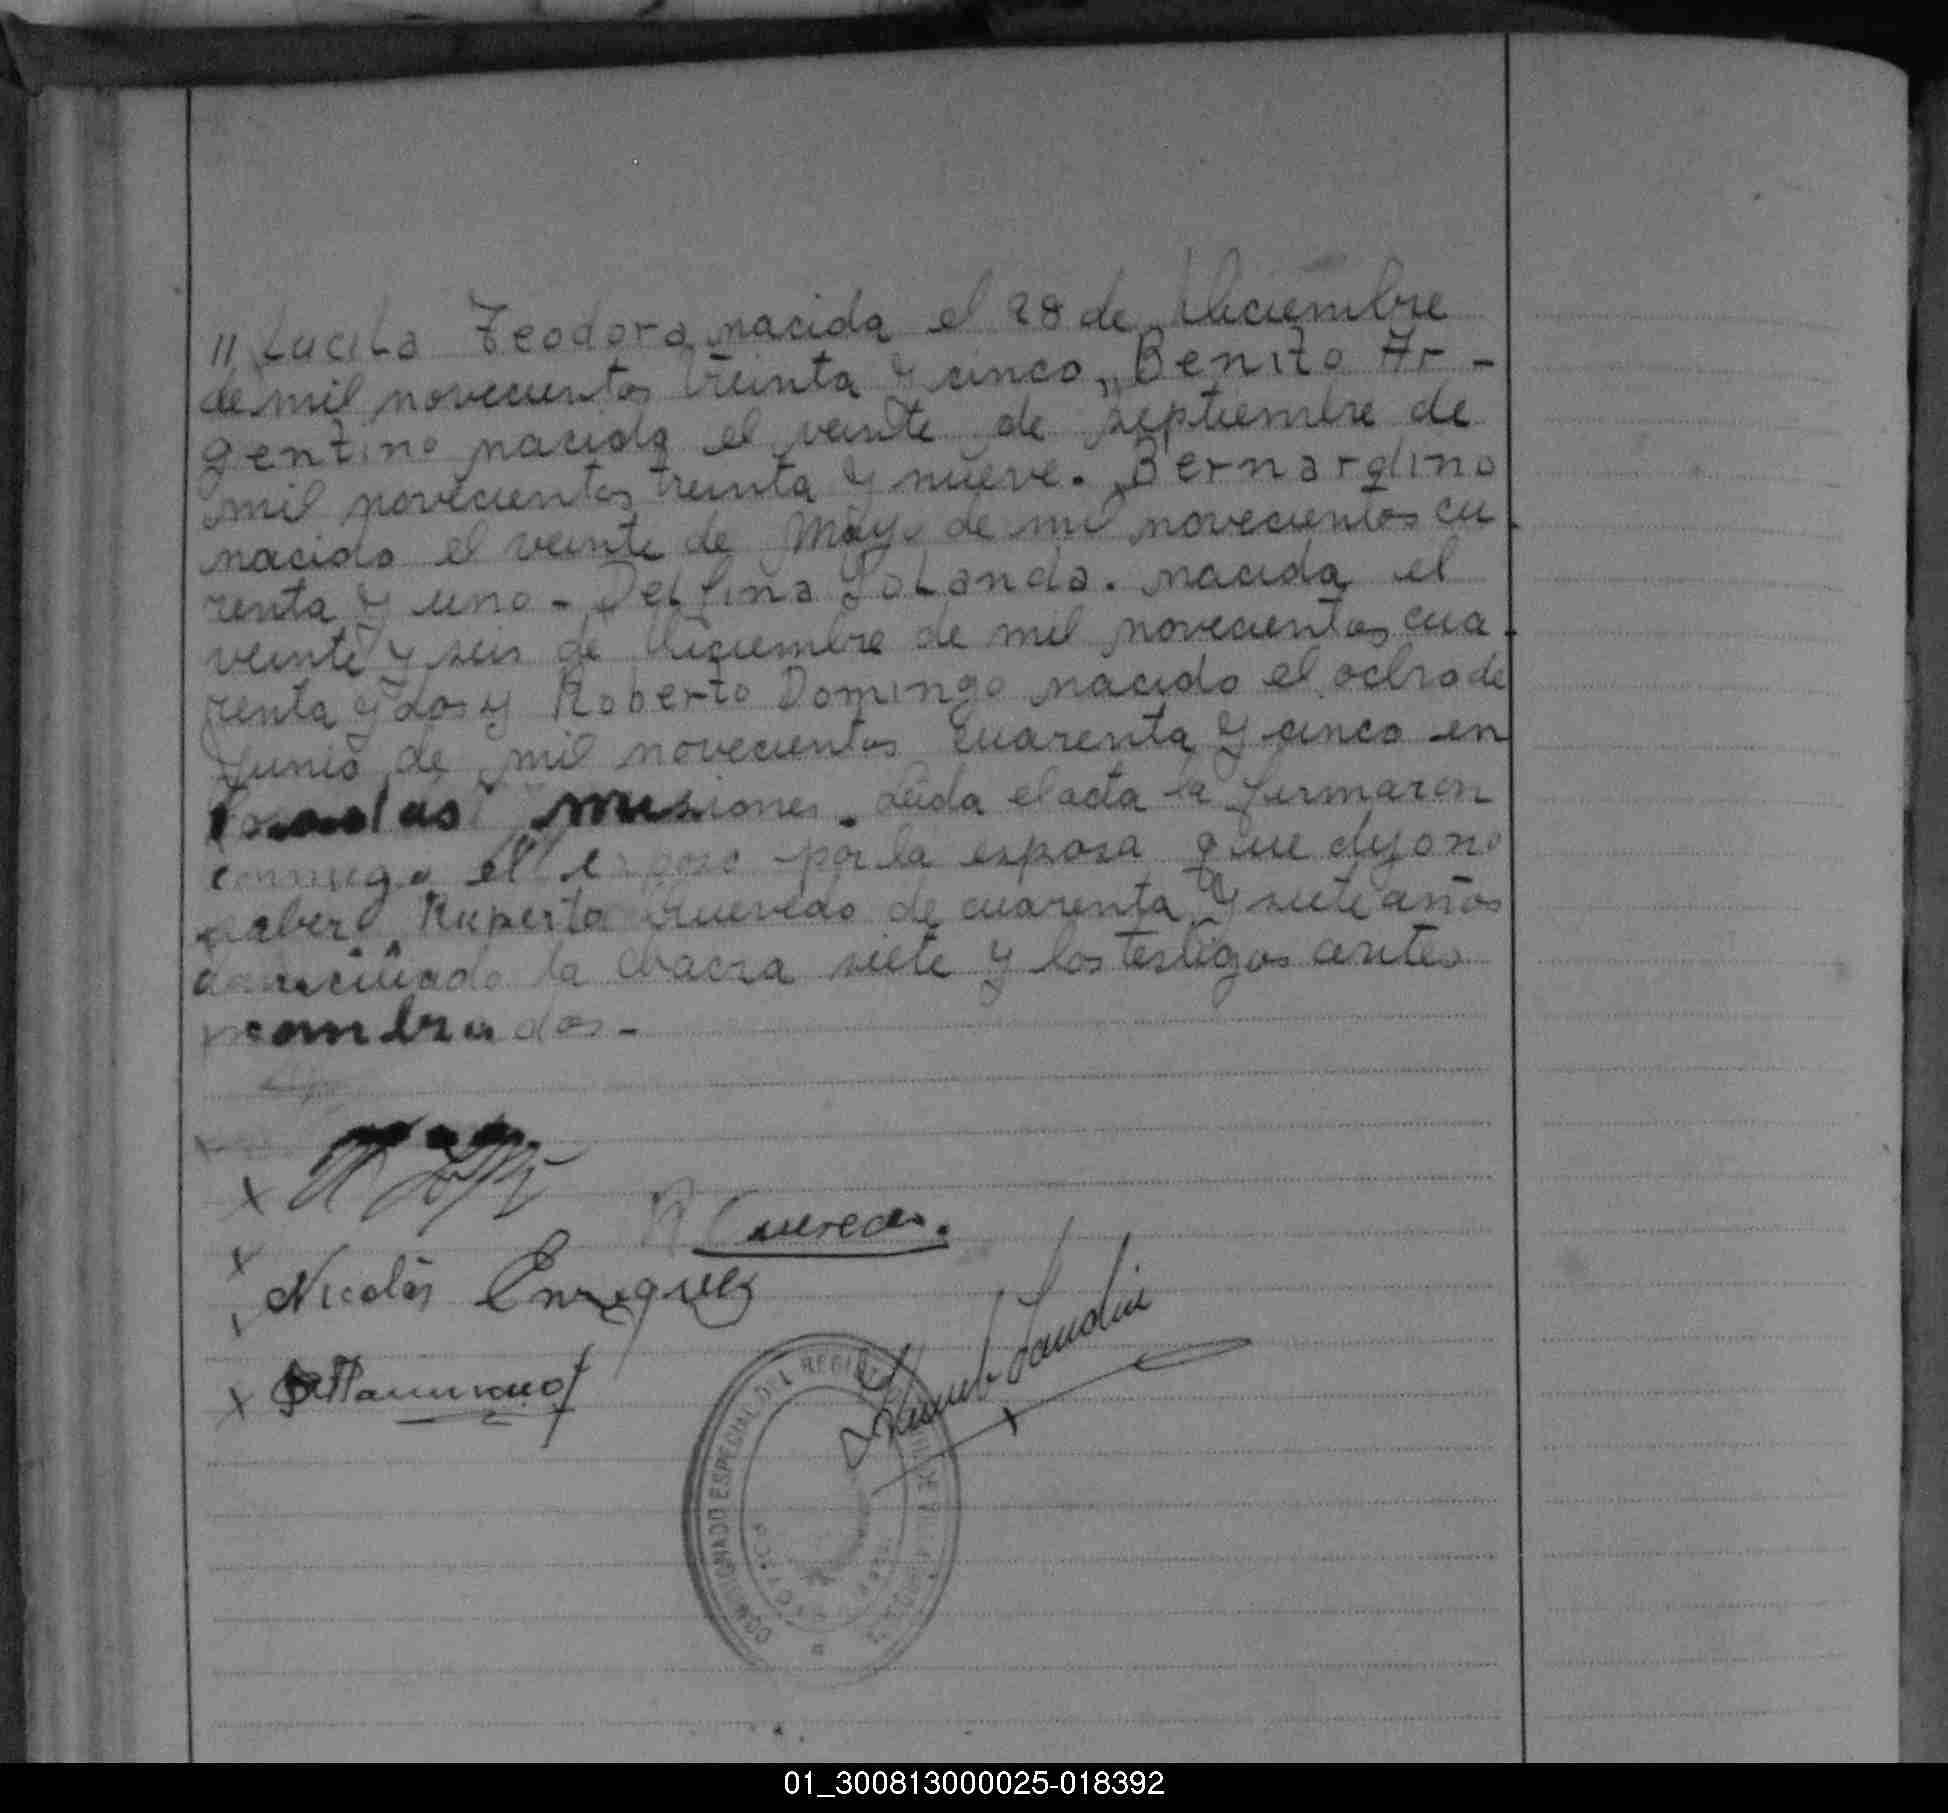 " Lucila Teodora nacida el 28 de Diciembre
de mil novecientos treinta y cinco, Benito Ar-
gentino nacido el veinte de septiembre de
mil novecientos treinta y nueve. Bernardino
nacido el veinte de Mayo de mil novecientos cu
renta y uno - Delfina Yolanda. nacida el
veinte y seis de Diciembre de mil novecientos cua
renta y dos y Roberto Domingo nacido el ocho de
Junio de mil novecientos cuarenta y cinco en
Posadas misiones. Leida el acta la firmaron
conmigo el esposo por la esposa que dijo no
saber Ruperto Quevedo de cuarenta y siete años
domiciliado la chacra siete y los testigos antes
nombrados.-
R Quevedo.
Nicolás Enriquez
COMISIONADO ESPECIAL DEL REGIS
01_300813000025-018392